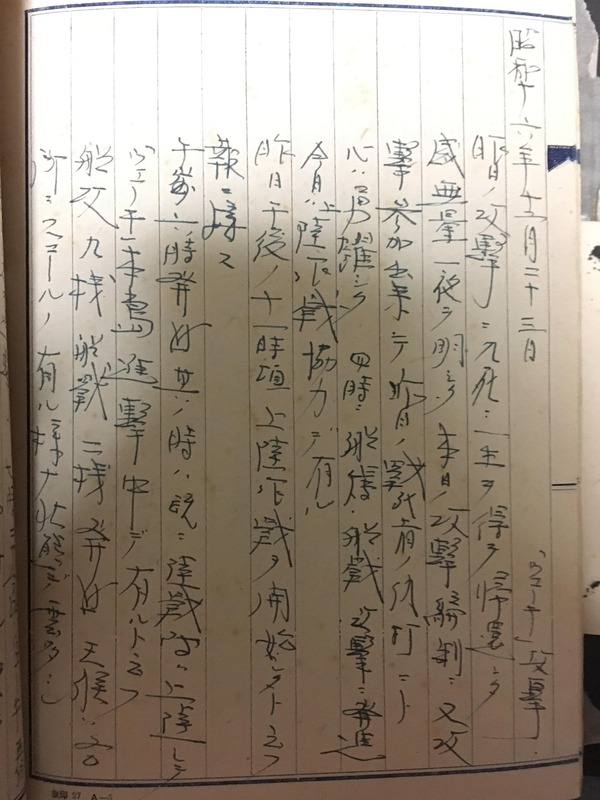 昭和十六年十二月二十三日
「ウエーキ」攻撃.
昨日ノ攻撃ニ九死ニ一生ヲ得テ帰還シタ
感無量一夜ヲ明シ 本日ノ攻撃編制ニ又攻
撃参加出来テ昨日ノ戦友ノ仇打ニト
心ハ勇躍シ 四時ニ 攻撃ニ発進
今日ハ上陸作戦協力デ有ル
昨日午後ノ十一時頃上陸作戦ヲ開始シタト云フ
報ニ接ス
午前六時発進 其ノ時ハ既ニ陸戦隊ハ上陸シテ
ウエーキ本島進撃中デ有ルト云フ
艦攻九機 艦戦二機 発進 天候ハ
所々スコールノ有ル様ナ状態デ雲多シ